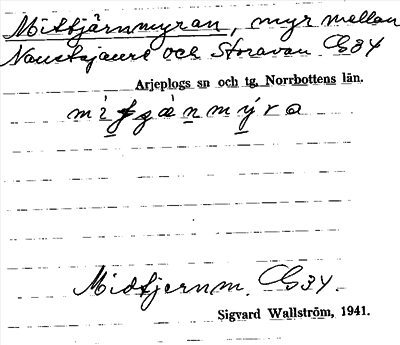 Mittjärnmyran, myr mellan
Naustajaure och Storavan. G34
Arjeplogs sn och tg, Norrbottens län.
Midtjernm. G34.
Sigvard Wallström, 1941.